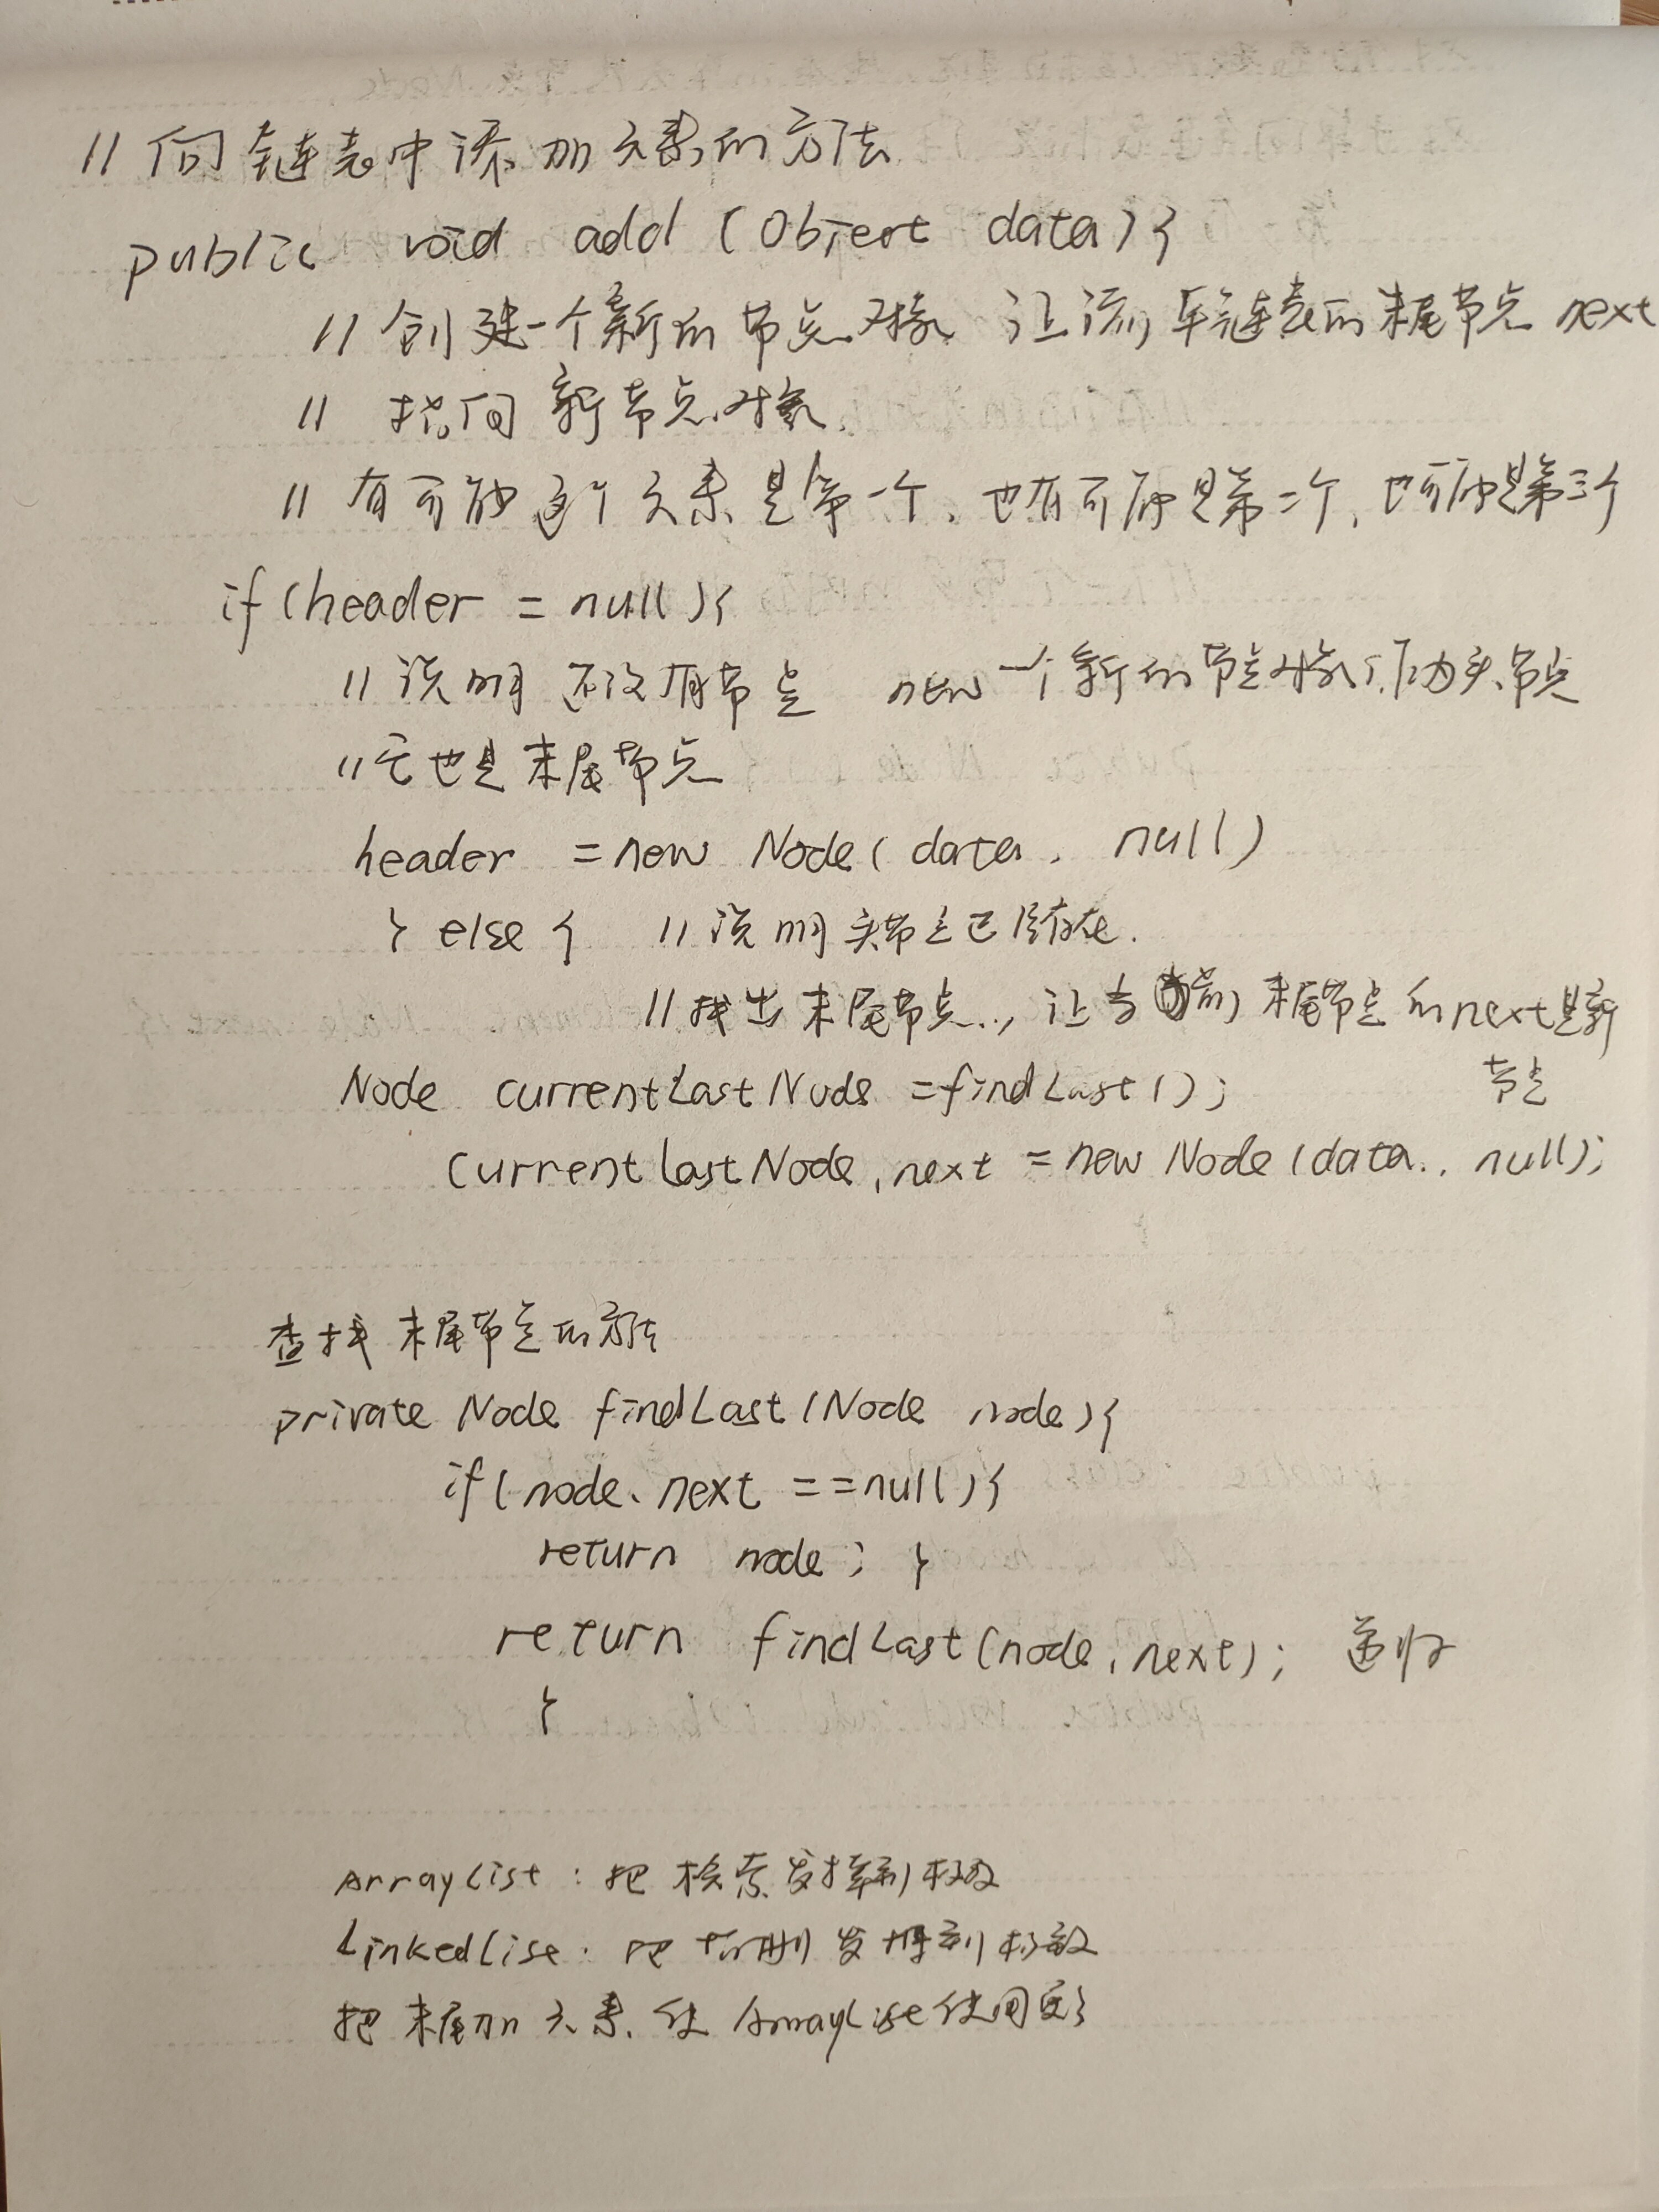 // 向链表中添加元素的方法
public void add (Object data){
// 创建一个新的节点对象 让 单链表的末尾节点 next
// 指向 新节点对象.
// 有可能这个元素是第一个, 也有可能是第二个, 也可能是第三个
if (header = null){
// 说明还没有节点 new 一个新的节点对象, 作为头节点
// 它也是末尾节点
header = new Node( data, null)
} else { // 说明头节点已 存在.
// 找出末尾节点.., 让当前末尾节点的next是新
节点
Node currentLastNode =findLast();
currentLastNode.next = new Node (data., null);
查找末尾节点的方法
private Node findLast (Node node){
if (node.next ==null){
return node; }
return findLast(node.next); 递归
}
ArrayList : 把检索发挥到极致
LinkedList : 把 增删 发挥到极致
把末尾加元素, ArrayList使用更多